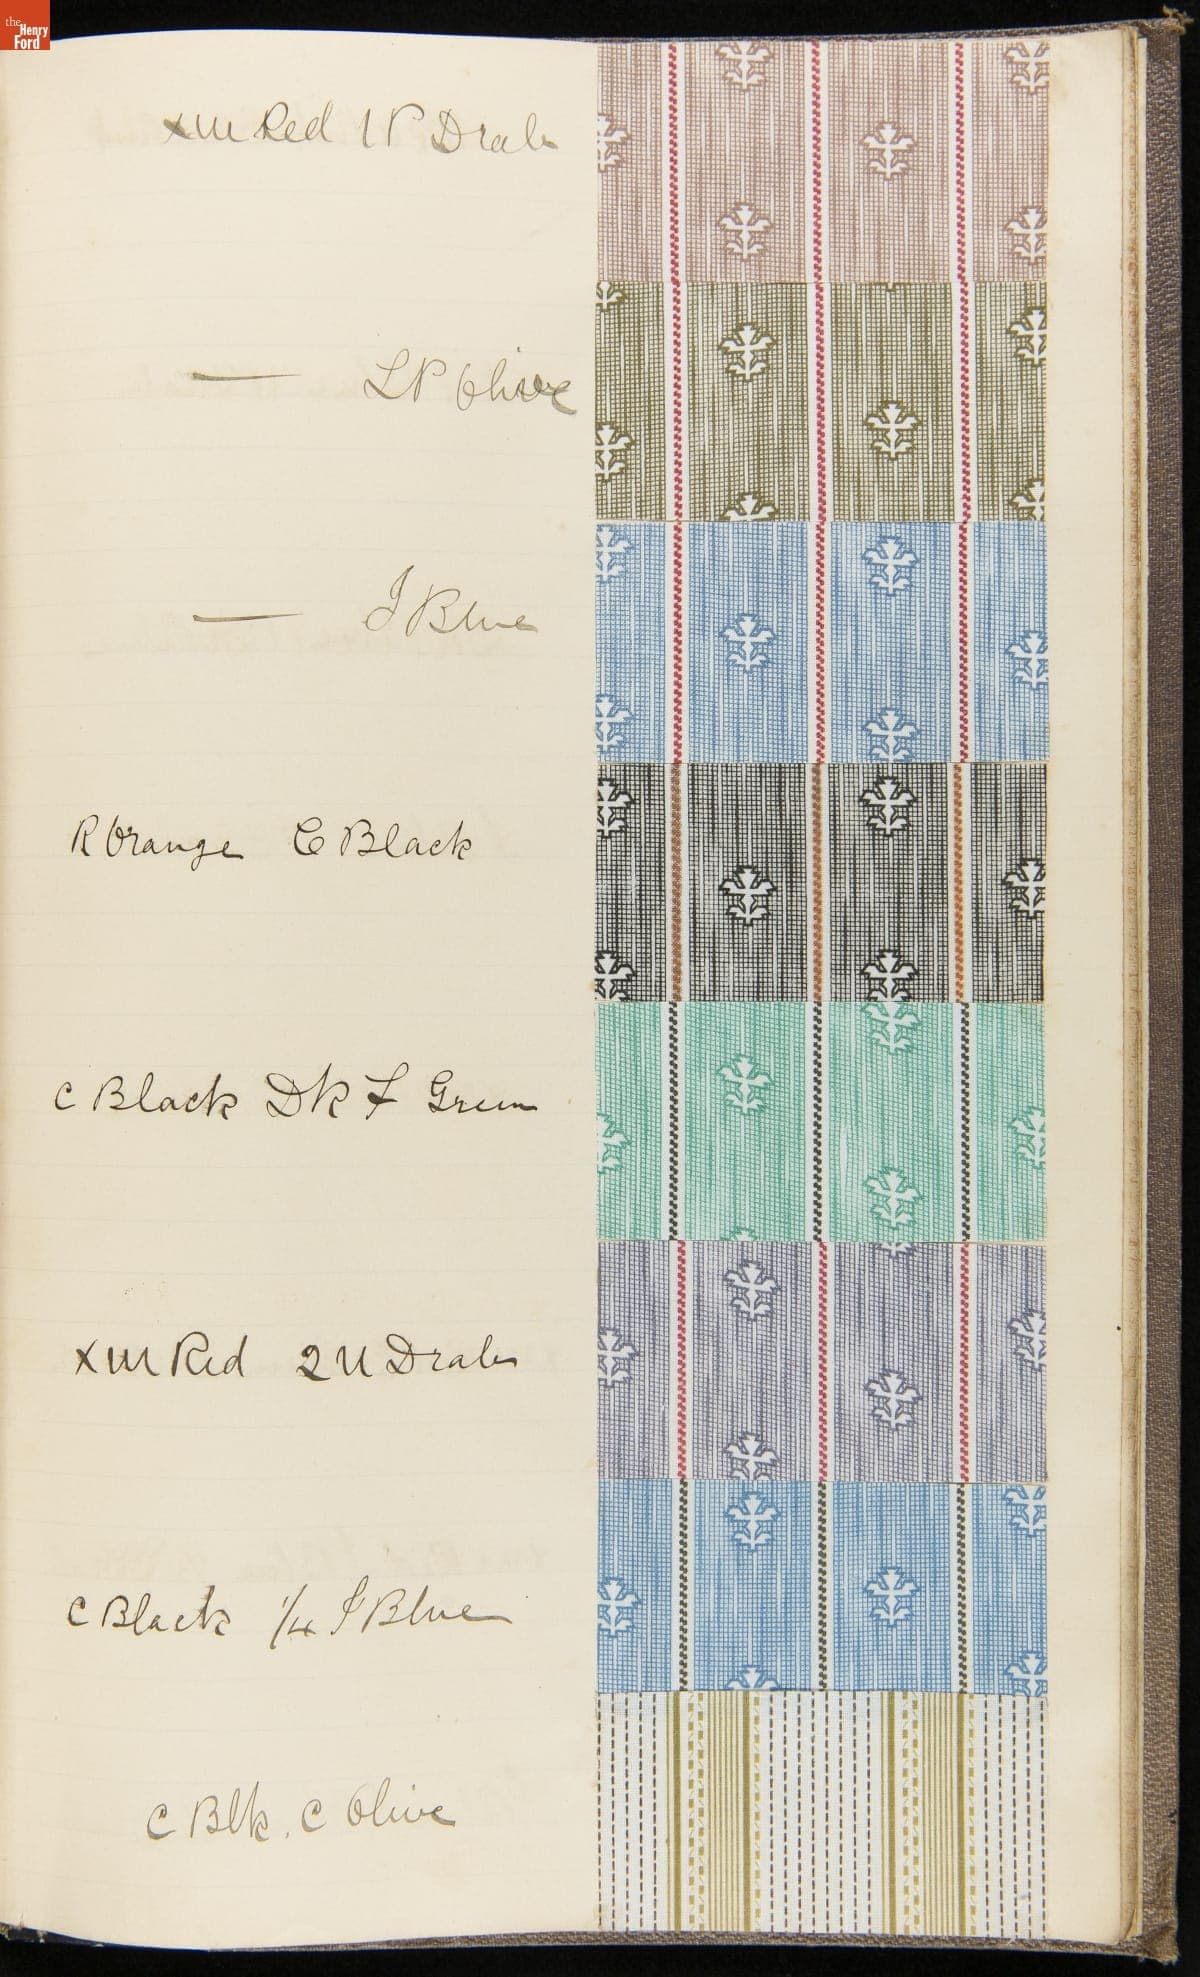 the Henry Ford
XM Red 1 P Drab
— L P Olive
— I Blue
R Orange C Black
C Black Dk F Green
XM Red 2 U Drab
C Black 1/4 I Blue
C Blk. C Olive